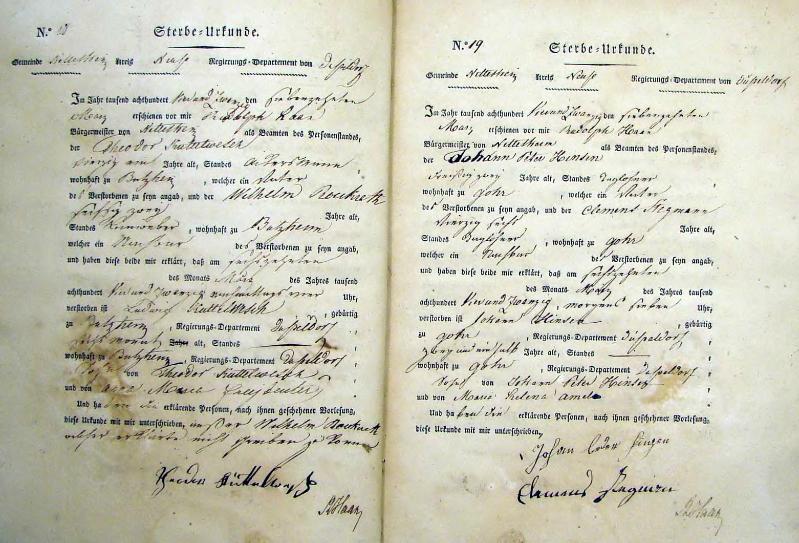 N.º 18 Sterbe-Urkunde.
Gemeinde Nettesheim Kreis Neuss Regierungs-Departement von Düsseldorf
Im Jahr tausend achthundert Vierundzwanzig den siebenzehnten
Maerz erschienen vor mir Rudolph Haar
Bürgermeister von Nettesheim als Beamten des Personenstandes,
der Theodor
vierzig ein Jahre alt, Standes Ackersmann
wohnhaft zu Butzheim, welcher ein Vater
des Verstorbenen zu seyn angab, und der Wilhelm
sechszig zwey Jahre alt,
Standes, wohnhaft zu Butzheim
welcher ein Nachbar des Verstorbenen zu seyn angab,
und haben diese beide mir erklärt, daß am sechszehnten
des Monats Maerz des Jahres tausend
achthundert Vierundzwanzig nachmittags vier Uhr,
verstorben ist Ludwig, gebürtig
zu Butzheim, Regierungs-Departement Düsseldorf
sechs monat Jahre alt, Standes
wohnhaft zu Butzheim, Regierungs-Departement Düsseldorf
Sohn von Theodor
und von Anna Maria
Und haben die erklärende Personen, nach ihnen geschehener Vorlesung,
diese Urkunde mit mir unterschrieben, außer Wilhelm
welcher erklärte nicht schreiben zu können
Theodor
RHaar
N.º 19 Sterbe-Urkunde.
Gemeinde Nettesheim Kreis Neuss Regierungs-Departement von Düsseldorf
Im Jahr tausend achthundert Vierundzwanzig den siebenzehnten
Maerz erschienen vor mir Rudolph Haar
Bürgermeister von Nettesheim als Beamten des Personenstandes,
der Johann Peter Hinsen
dreissig zwey Jahre alt, Standes Taglöhner
wohnhaft zu Gohr, welcher ein Vater
des Verstorbenen zu seyn angab, und der Clemens Stegmann
vierzig sechs Jahre alt,
Standes Taglöhner, wohnhaft zu Gohr
welcher ein Nachbar des Verstorbenen zu seyn angab,
und haben diese beide mir erklärt, daß am sechszehnten
des Monats Maerz des Jahres tausend
achthundert Vierundzwanzig, morgens sieben Uhr,
verstorben ist Johann Hinsen, gebürtig
zu Gohr, Regierungs-Departement Düsseldorf
zwey und einhalb Jahre alt, Standes
wohnhaft zu Gohr, Regierungs-Departement Düsseldorf
Sohn von Johann Peter Hinsen
und von Maria Helena
Und haben die erklärende Personen, nach ihnen geschehener Vorlesung,
diese Urkunde mit mir unterschrieben,
Johan
Clemens
RHaar